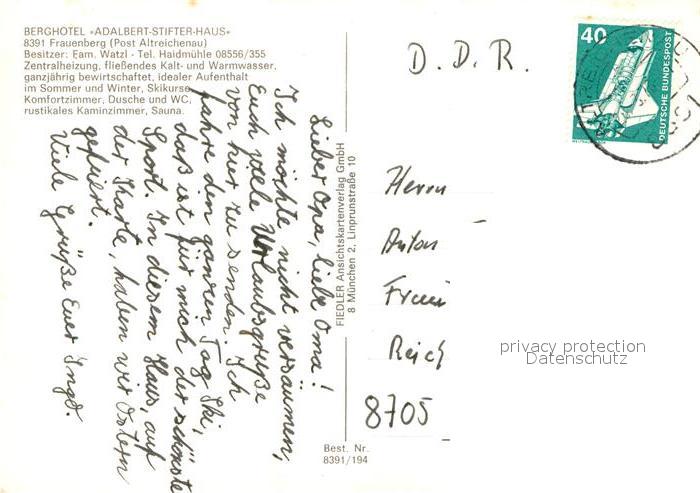 BERGHOTEL »ADALBERT-STIFTER-HAUS«
8391 Frauenberg (Post Altreichenau)
Besitzer: Fam. Watzl - Tel. Haidmühle 08556/355
Zentralheizung, fließendes Kalt- und Warmwasser,
ganzjährig bewirtschaftet, idealer Aufenthalt
im Sommer und Winter, Skikurse,
Komfortzimmer, Dusche und WC,
rustikales Kaminzimmer, Sauna.
Lieber Opa, liebe Oma!
Ich möchte nicht versäumen,
Euch viele Urlaubsgrüße
von hier zu senden. Ich
fahre den ganzen Tag Ski,
daß ist für mich der schönste
Sport. In diesem Haus, auf
der Karte, haben wir Ostern
gefeiert.
Viele Grüße Euer Ingo.
FIEDLER Ansichtskartenverlag GmbH
8 München 2, Linprunstraße 10
Best. Nr.
8391/194
D. D. R.
40
DEUTSCHE BUNDESPOST
Herrn
Anton
Reich
8705
privacy protection
Datenschutz